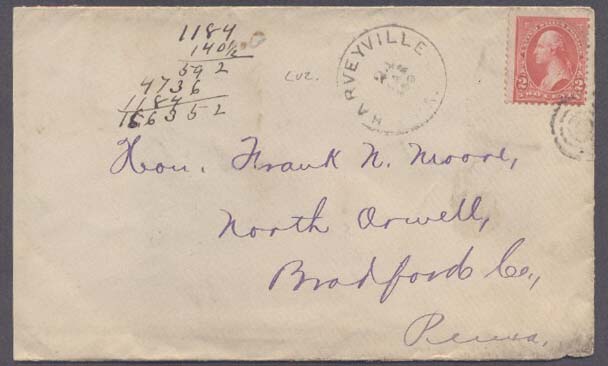 1184
140½
592
4736
1184
166352
LUZ.
HARVEYVILLE
Hon. Frank N. Moore,
North Orwell,
Bradford Co.,
Penna.